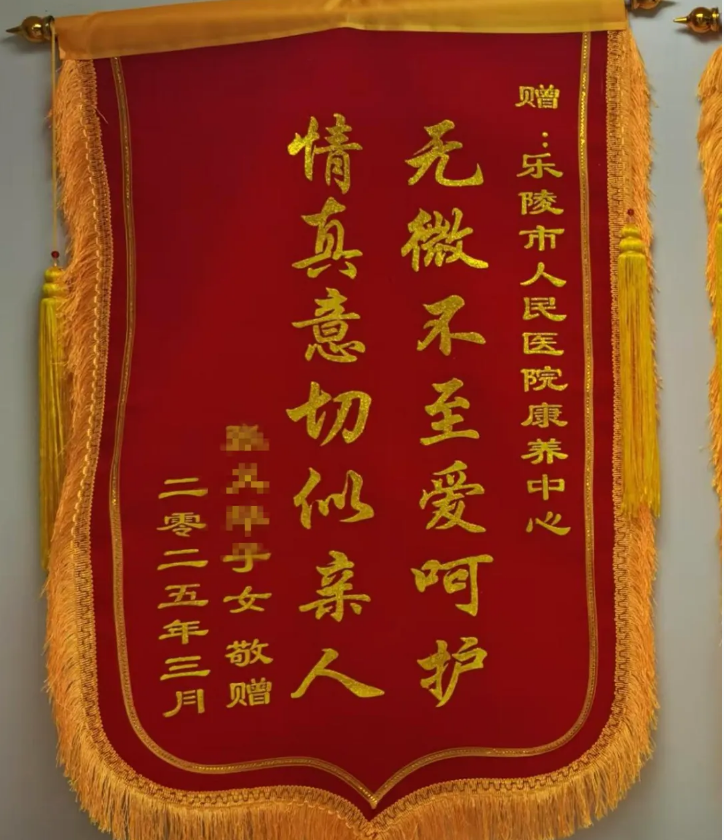 赠：乐陵市人民医院康养中心
无微不至爱呵护
情真意切似亲人
子女 敬赠
二零二五年三月